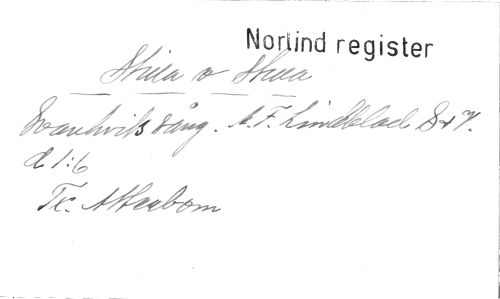 Norlind register
Stilla o Stilla
Svanhvits sång. A. F. Lindblad S o V.
d 1:6
Tx. Atterbom